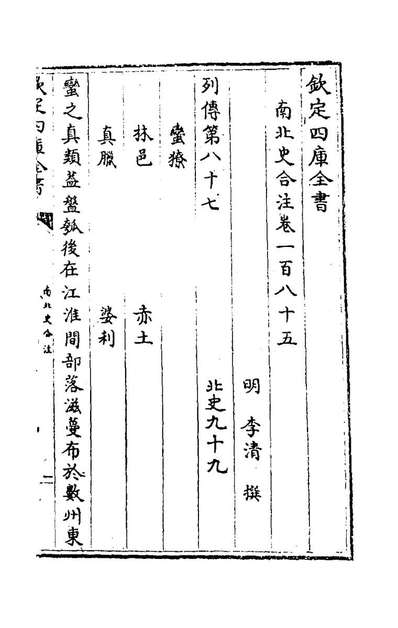 欽定四庫全書
南北史合注卷一百八十五
明 李清 撰
列傳第八十七 北史九十九
蠻獠
林邑 赤土
真臘 婆利
蠻之真類葢盤瓠後在江淮間部落滋蔓布於數州東
欽定四庫全書
南北史合注